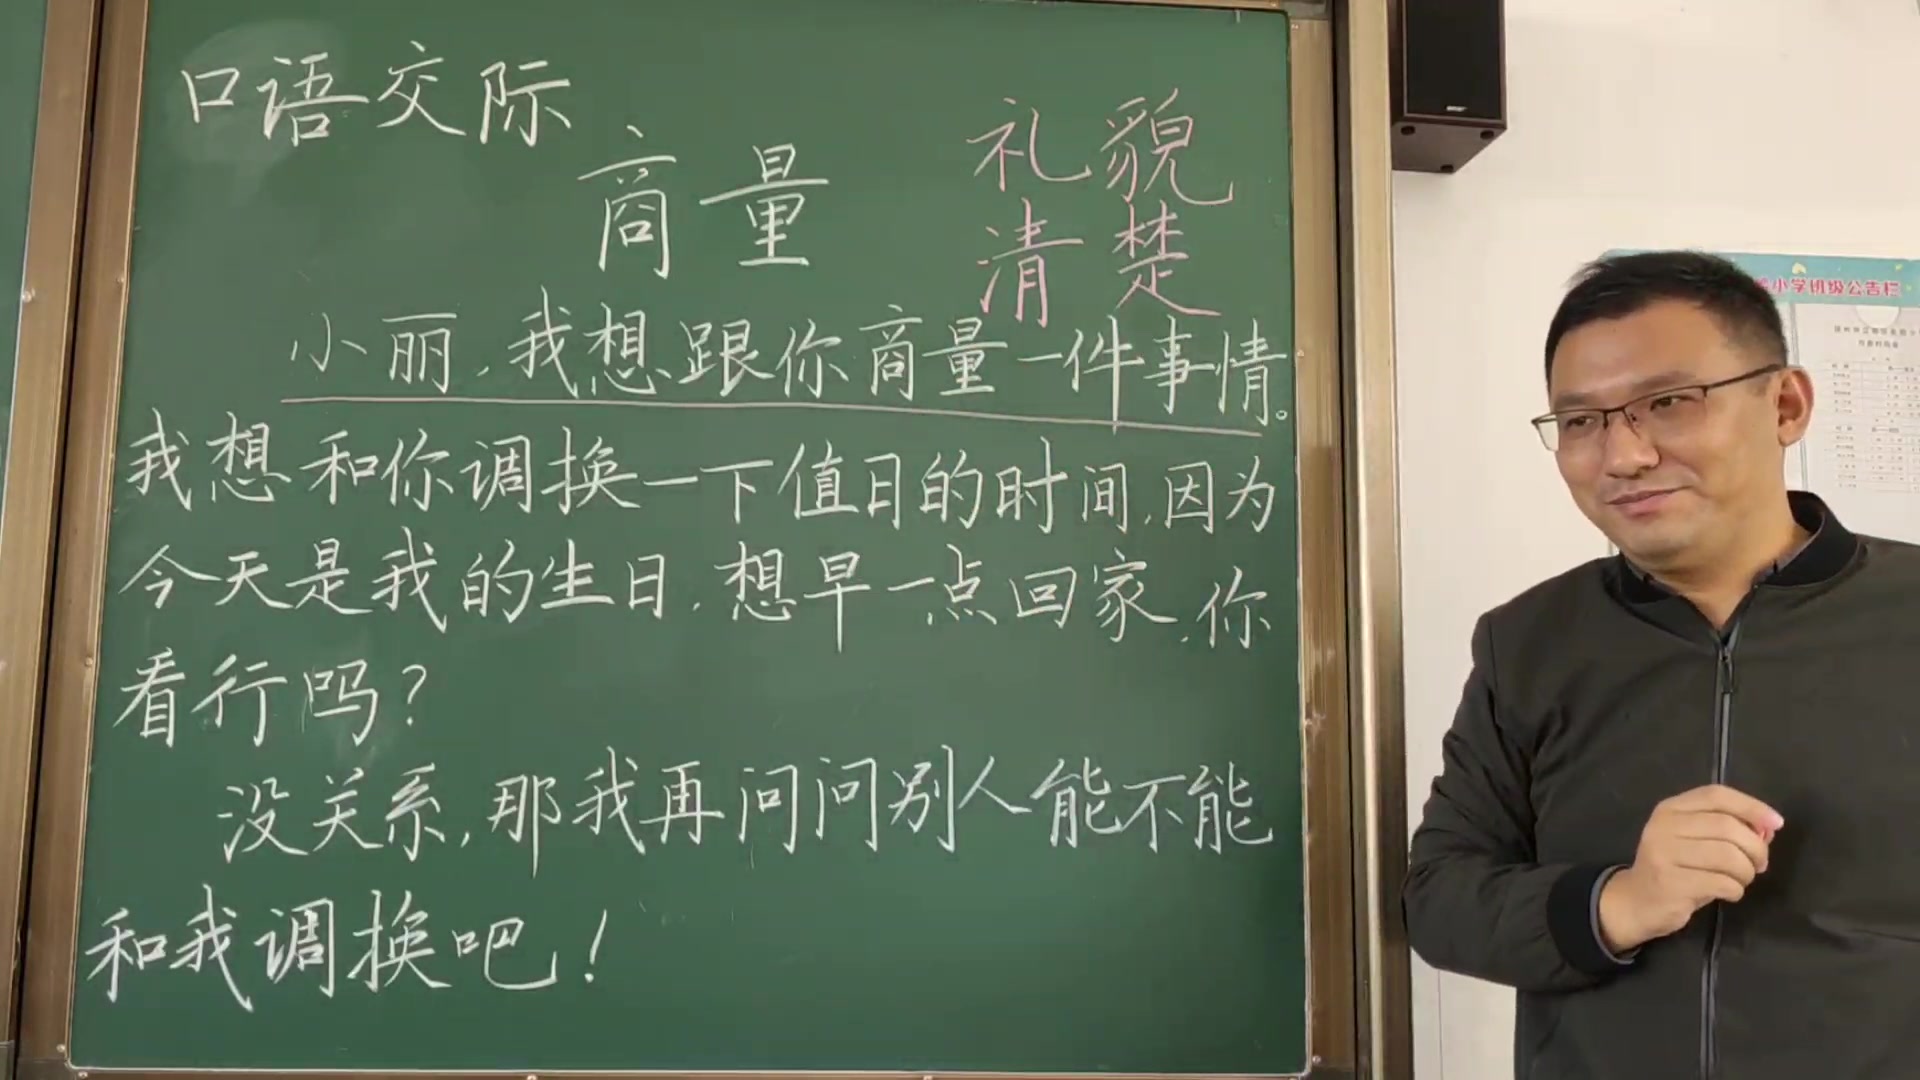 口语交际
商量
礼貌
清楚
小丽，我想跟你商量一件事情。
我想和你调换一下值日的时间，因为
今天是我的生日，想早一点回家，你
看行吗？
没关系，那我再问问别人能不能
和我调换吧！
小学班级公告栏